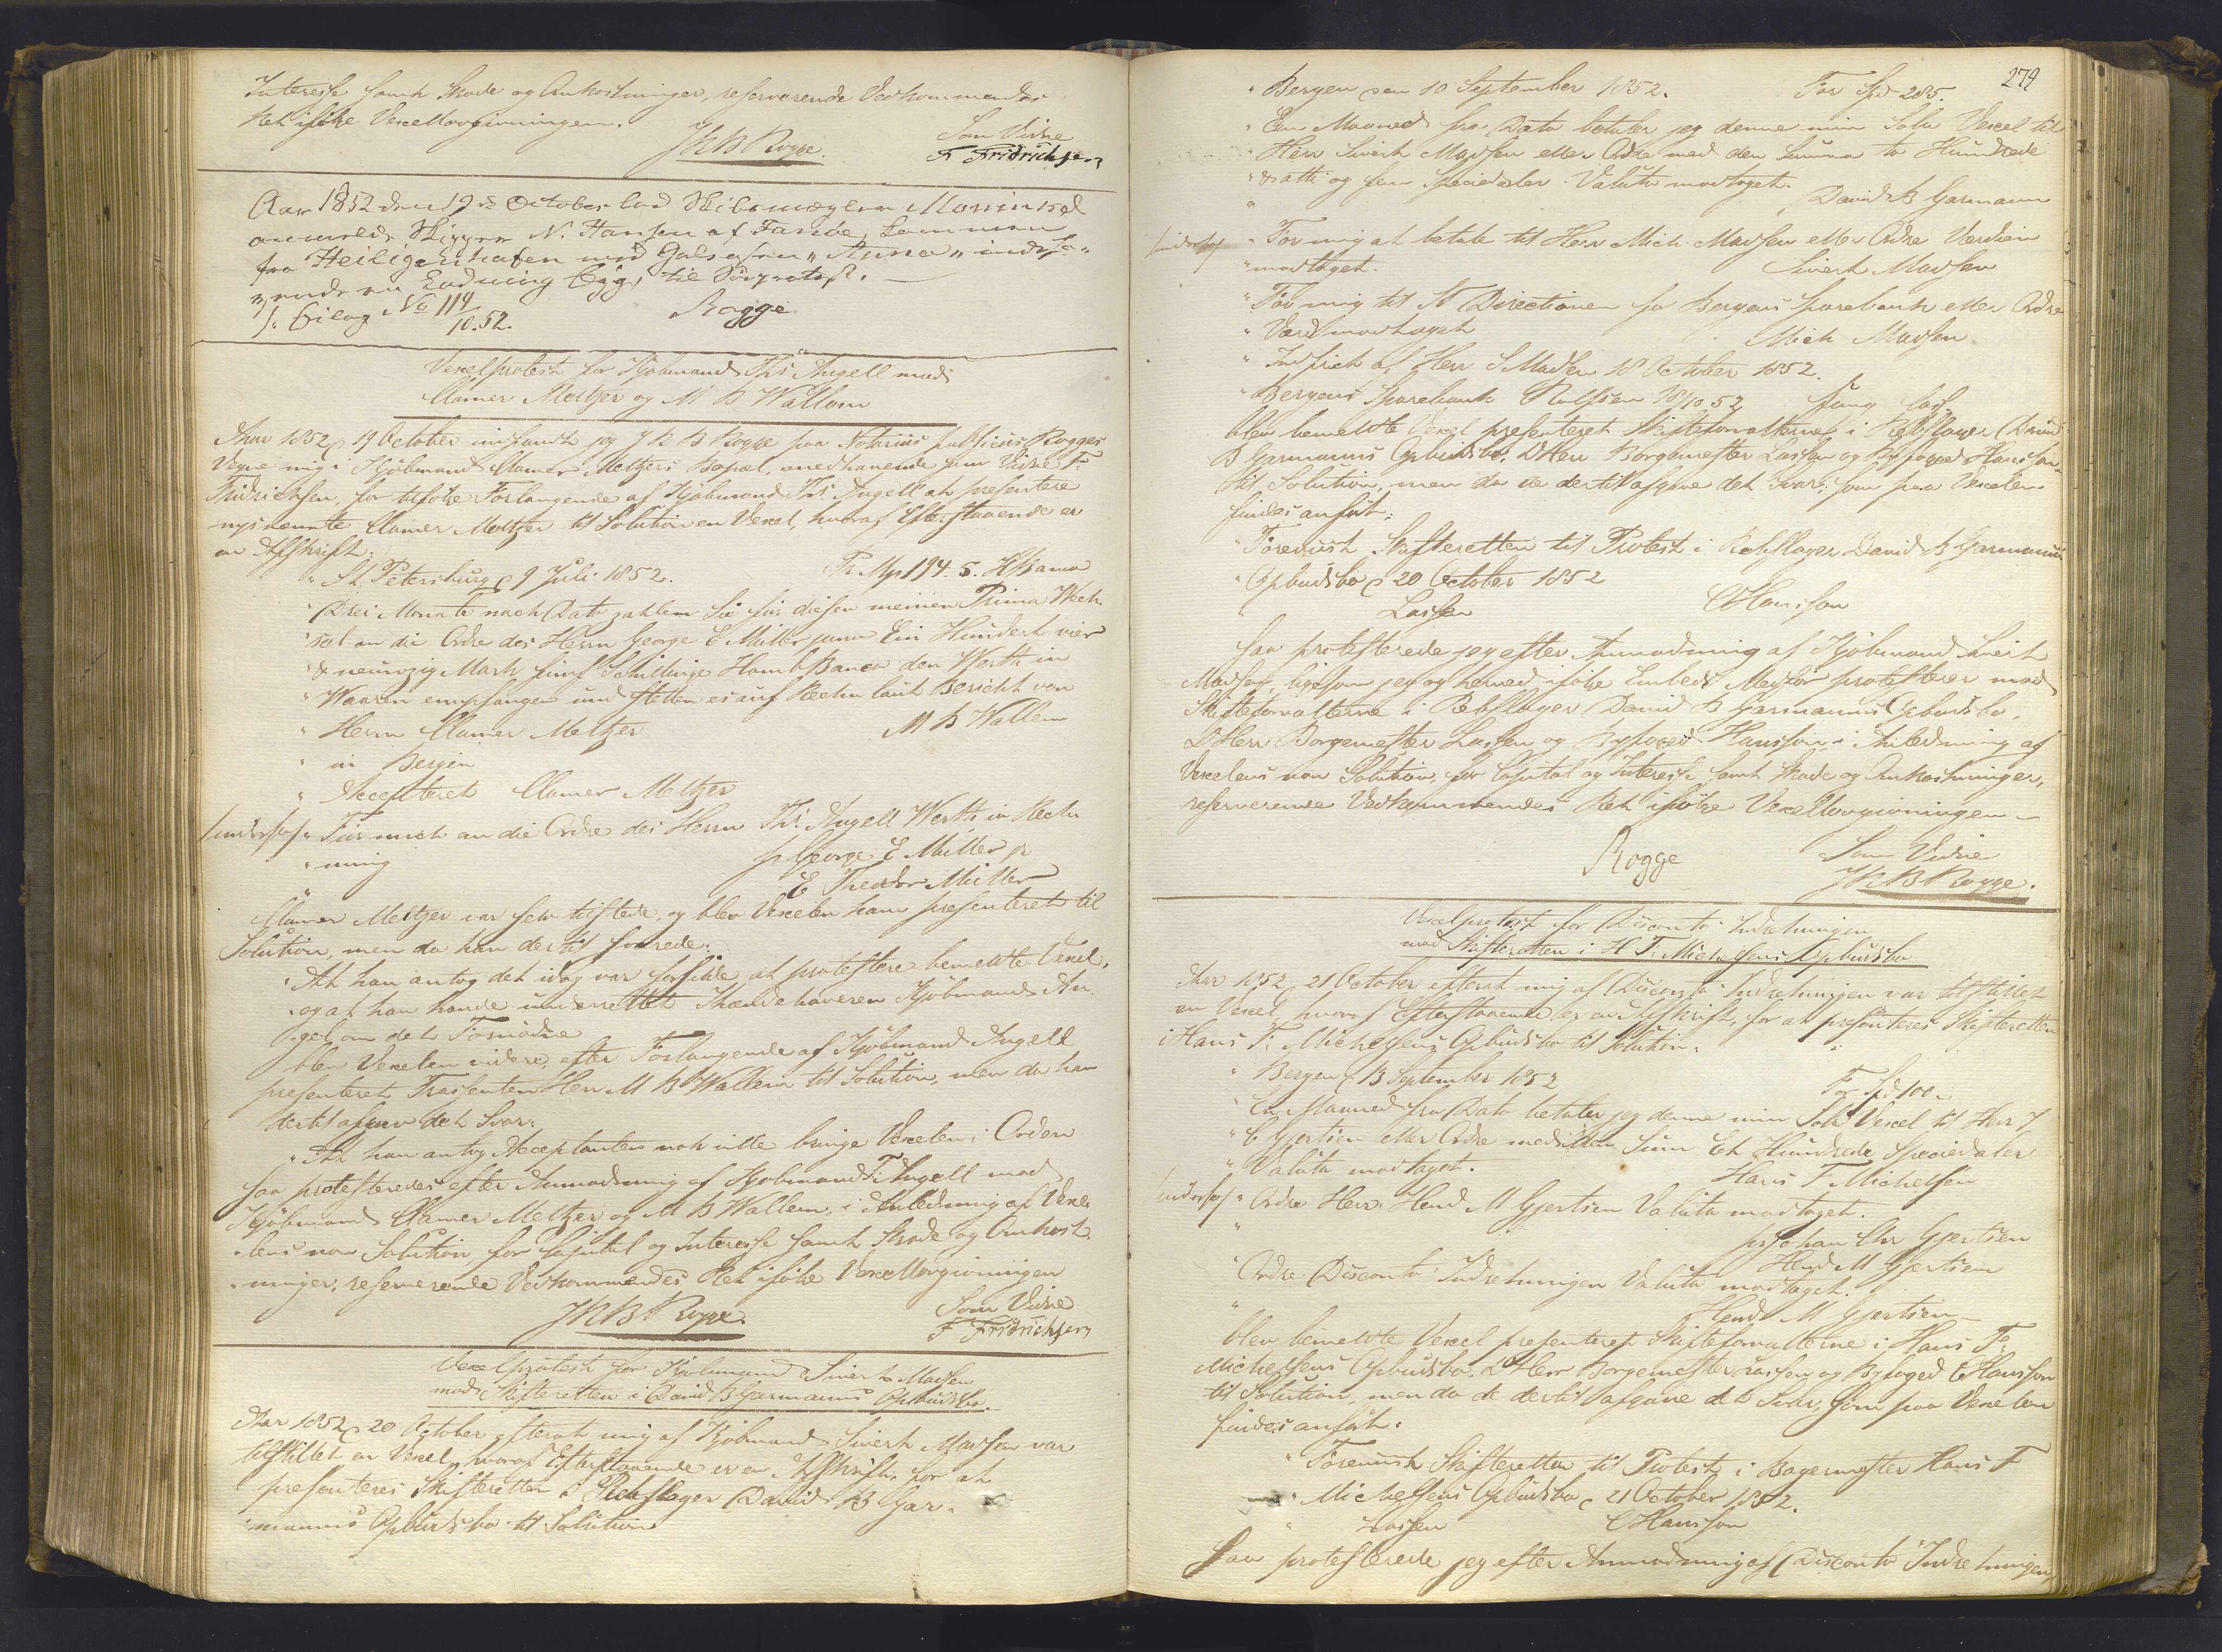 Interesse samt Skade og Omkostninger, reserverende Vedkommendes
Ret ifølge Vexellovgivningen.
JKB Rogge.
Som Vidne
F Fridrichsen
Aar 1852 den 19de October lod Skibsmægler Mowinckel
anmelde Skipper N. Hansen af Farsde, kommen
fra Heiligenhafen med Galeasen "Anna" indeha-
vende en Ladning Byg, til Søeprotest.
s. Bilag No 114
10.52.
Rogge
Vexelprotest for Kjøbmand Ths Angell mod
Clamer Meltzer og M B Wallem
Aar 1852 d 19 October indfandt jeg J K B Rogge paa Notarius publicus Rogges
Vegne mig i Kjøbmand Clamer Meltzers Bopæl, medhavende som Vidne F
Fridrichsen, for tilfølge Forlangende af Kjøbmand Ths Angell at presentere
nysnævnte Clamer Meltzer til Solution en Vexel, hvoraf Efterstaaende er
en Afskrift:
" St. Petersburg d 9 Juli 1852. Pr. Mp 194. 5. H Banco
" Drei Monate nach Dato zahlen Sie für diesen meinen Prima Wech-
" sel an die Ordre des Herrn George E Müller junr Ein Hundert vier
" & neunzig Mark fünf Schillinge Hamb Banco den Werth in
" Waaren empfangen und stellen es auf Rechn laut Bericht von
" Herrn Clamer Meltzer M B Wallem
" in Bergen
" Accepteret Clamer Meltzer
Endossos " Für mich an die Ordre des Herrn Ths Angell Werth in Rech-
" nung p George E Müller jr
" E Theodor Müller
Clamer Meltzer var selv tilstede, og blev Vexelen ham presenteret til
Solution, men da han dertil svarede:
" At han antog det idag var forsilde at protestere bemeldte Vexel,
" og at han havde underrettet Ihændehaveren Kjøbmand An-
" gel, om det Fornødne
blev Vexelen videre, efter Forlangende af Kjøbmand Angell
presenteret Trassenten Herr M B Wallem til Solution, men da han
dertil afgav det Svar:
" At han antog Acceptanten nok ville bringe Vexelen i Orden
saa protesteredes efter Anmodning af Kjøbmand T. Angell mod
Kjøbmand Clamer Meltzer og M B Wallem, i Anledning af Vexe-
lens non Solution, for Capital og Interesse samt Skade og Omkost-
ninger, reserverende Vedkommendes Ret ifølge Vexellovgivningen
JKB Rogge
Som Vidne
F Fridrichsen
Vexelprotest for Kjøbmand Sivert Madsen
mod Skifteretten i David B Garmanns Opbudsbo.
Aar 1852 d 20 October efterat mig af Kjøbmand Sivert Madsen var
tilstillet en Vexel, hvoraf Efterstaaende er en Afskrift, for at
presenteres Skifteretten i Rebslager David B Gar-
manns Opbudsbo til Solution
279
" Bergen den 10 September 1852. For Spd 285.
" Een Maaned fra Dato betaler jeg denne min Sola Vexel til
" Herr Sivert Madsen eller Ordre med den Summa to Hundrede
" & otti og fem Speciedaler. Valuta modtaget.
" David B Garmann
Endossos " For mig at betale til Herr Mich. Madsen eller Ordre Værdien
" modtaget. Sivert Madsen
" For mig til Directionen for Bergens Sparebank eller Ordre
" Værd modtaget Mich Madsen
" Indfriet af Herr S Madsen 18 October 1852.
" Bergens Sparebank 18/10 52
blev bemeldte Vexel presenteret Skifteforvalterne i Rebslager David
B Garmanns Opbudsbo, D'Herr Borgemester Lassen og Byfoged Hansson
til Solution, men da de dertil afgave det Svar, som paa Vexelen
findes anført:
" Forevust Skifteretten til Protest i Rebslager David B Garmanns
" Opbudsbo d 20 October 1852
" Lassen CHansson
saa protesterede jeg efter Anmodning af Kjøbmand Sivert
Madsen, ligesom jeg og herved ifølge Embeds Medfør protesterer mod
Skifteforvalterne i Rebslager David B Garmanns Opbudsbo,
D'Herr Borgemester Lassen og Byfoged Hansson, i Anledning af
Vexelens non Solution, for Capital og Interesse samt Skade og Omkostninger,
reserverende Vedkommendes Ret ifølge Vexellovgivningen
Rogge
Som Vidne
JKB Rogge.
Vexelprotest for Disconto Indretningen
mod Skifteretten i H F. Michelsens Opbudsbo
Aar 1852 d 21 October efterat mig af Disconto Indretningen var tilstillet
en Vexel, hvoraf Efterstaaende er en Afskrift, for at presenteres Skifteretten
i Hans F. Michelsens Opbudsbo til Solution:
" Bergen d 13 September 1852 For Spd 100.
" En Maaned fra Dato betaler jeg denne min Sola Vexel til Herr J
" C Gjertsen eller Ordre med den Sum Et Hundrede Speciedaler
" Valuta modtaget. Hans F Michelsen
Endossos " Ordre Herr Hend M Gjertsen Valuta modtaget.
" p Johan Chr Gjertsen
Hend M Gjertsen
" Ordre Disconto Indretningen Valuta modtaget.
" Hend M Gjertsen
blev bemeldte Vexel presenteret Skifteforvalterne i Hans F.
Michelsens Opbudsbo, D'Herr Borgemester Lassen og Byfoged CHansson
til Solution, men da de dertil afgave det Svar, som paa Vexelen
findes anført:
" Forevust Skifteretten til Protest i Bagermester Hans F
" Michelsens Opbudsbo d 21 October 1852.
" Lassen CHansson
saa protesterede jeg efter Anmodning af Disconto Indretningen,